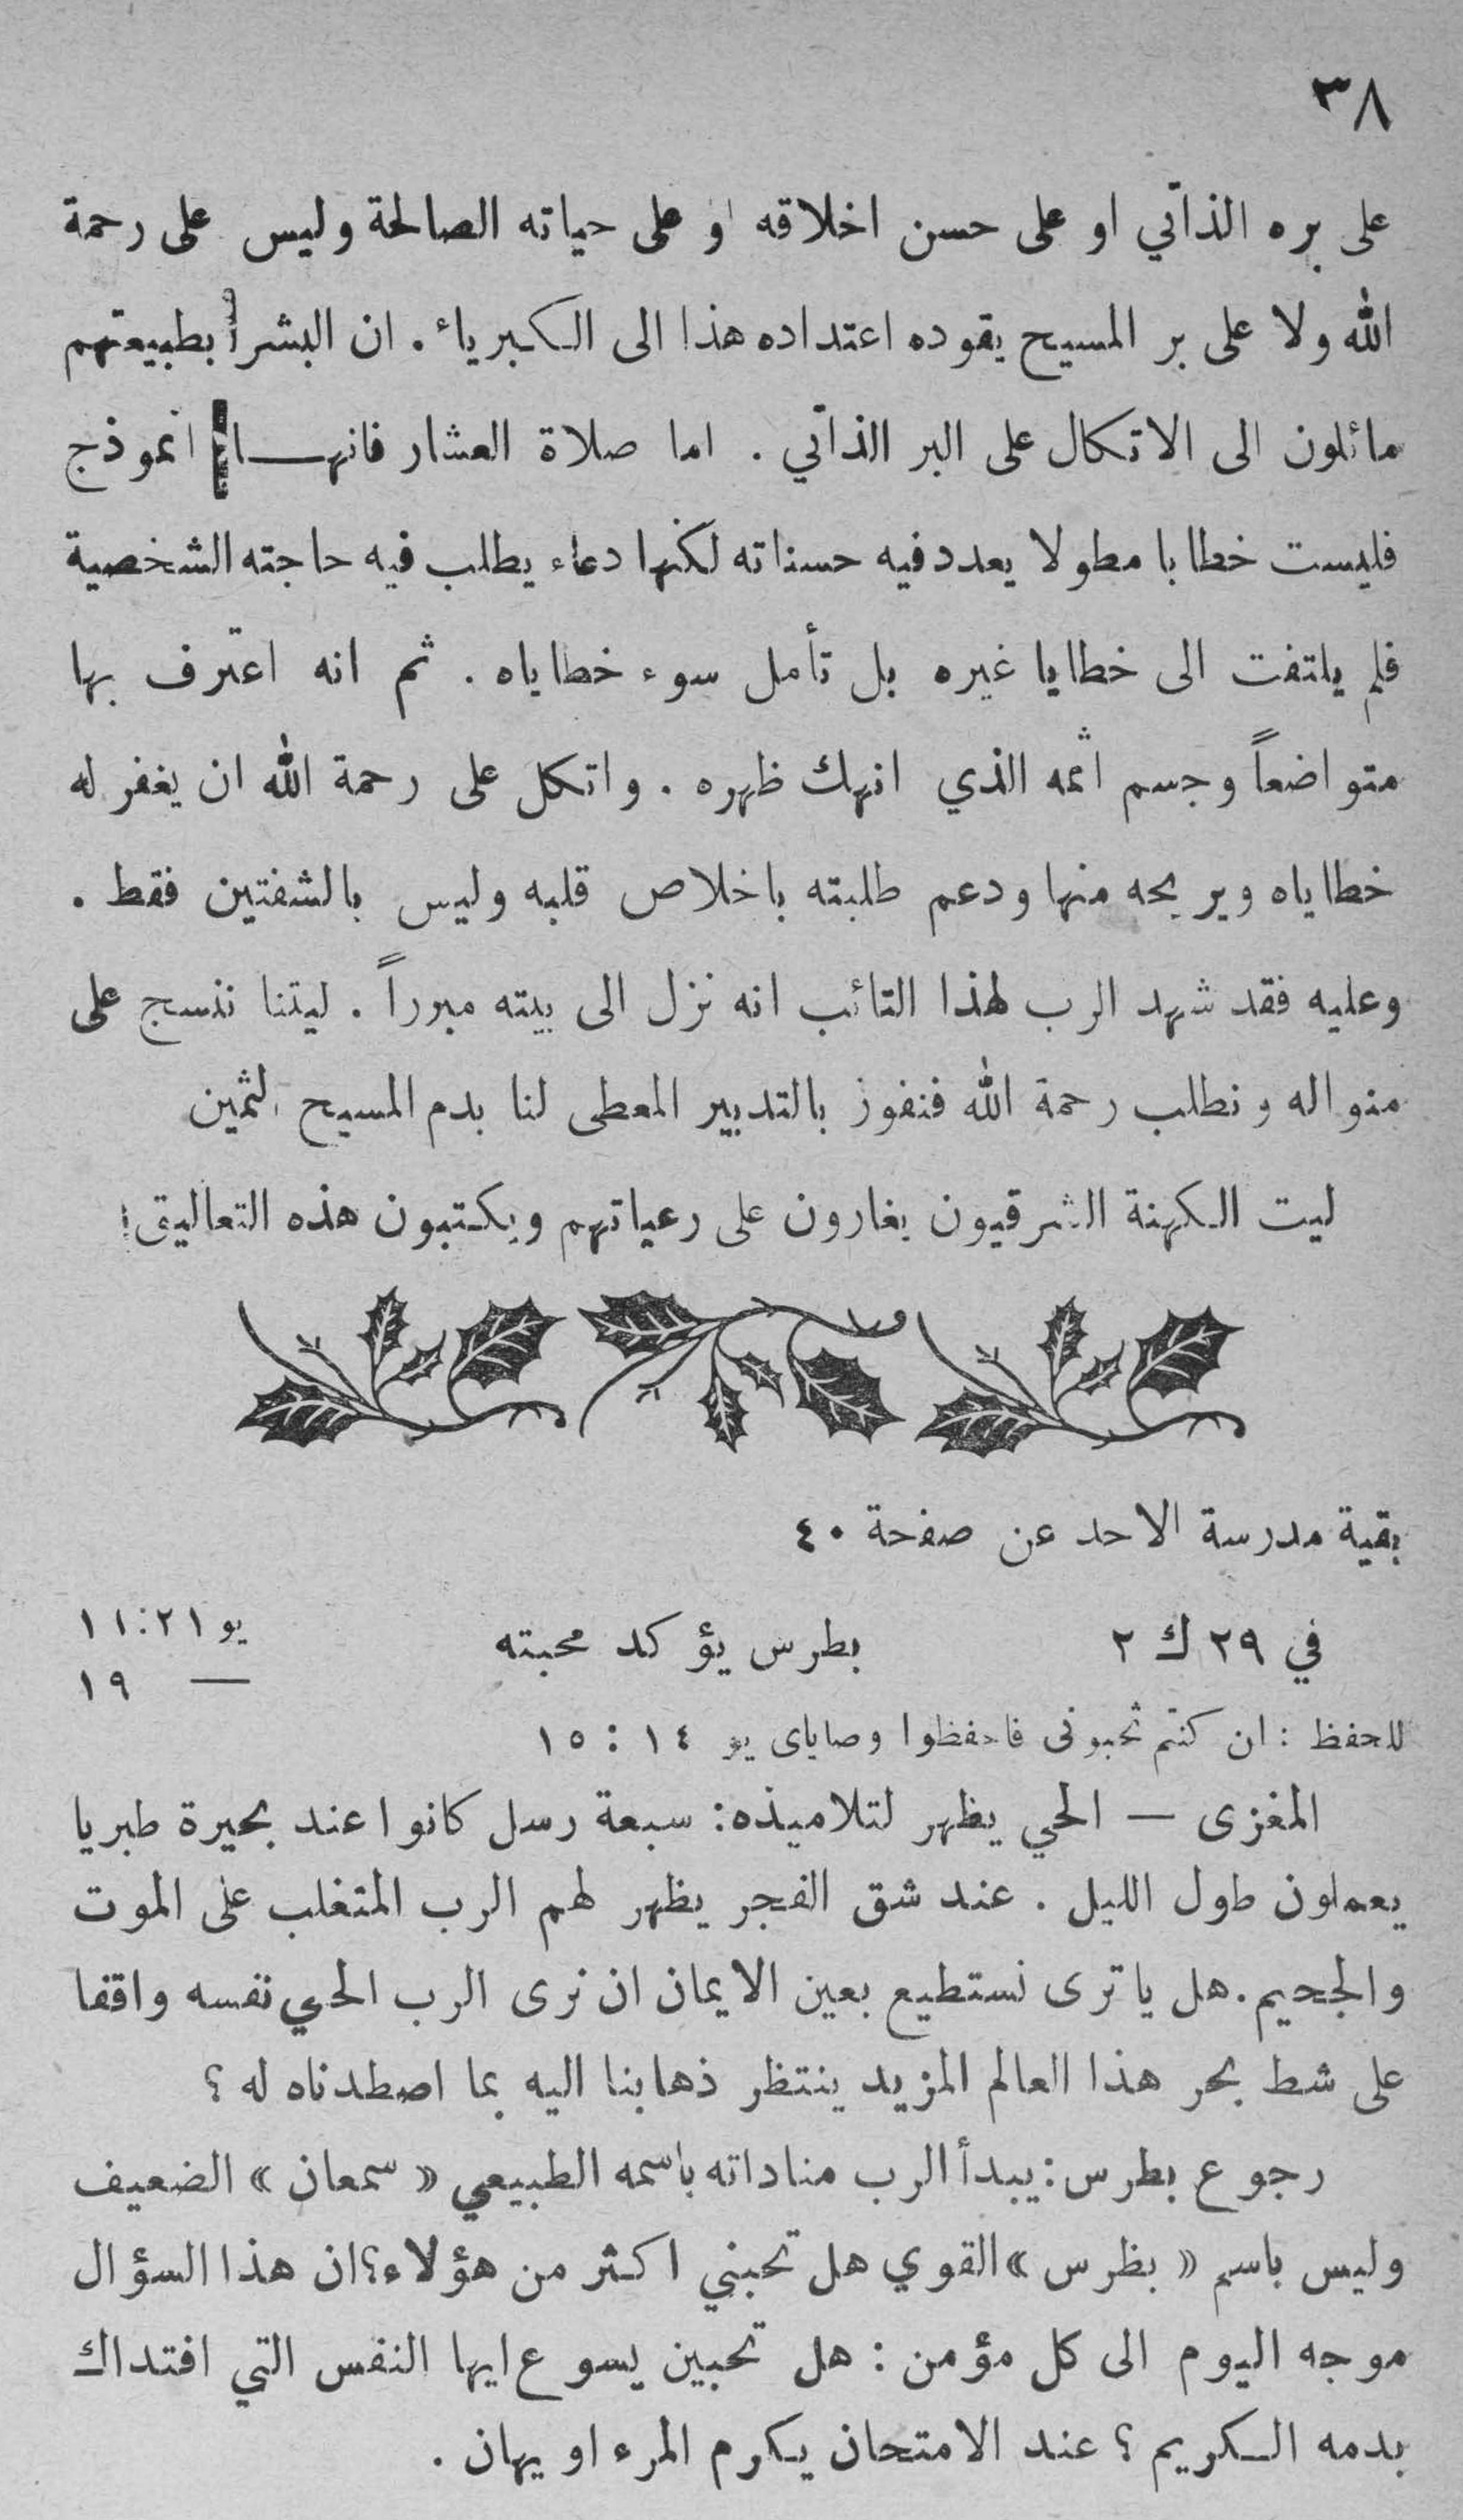 ٣٨
على بره الذاتي او على حسن اخلاقه او على حياته الصالحة وليس على رحمة
الله ولا على بر المسيح يقوده اعتداده هذا الى الكبرياء . ان البشر بطبيعتهم
مائلون الى الاتكال على البر الذاتي . اما صلاة العشار فانهـا انموذج
فليست خطابا مطولا يعدد فيه حسناته لكنها دعاء يطلب فيه حاجته الشخصية
فلم يلتفت الى خطايا غيره بل تأمل سوء خطاياه . ثم انه اعترف بها
متواضعاً وجسم اثمه الذي انهك ظهره . واتكل على رحمة الله ان يغفر له
خطاياه ويريحه منها ودعم طلبته باخلاص قلبه وليس بالشفتين فقط .
وعليه فقد شهد الرب لهذا التائب انه نزل الى بيته مبرراً . ليتنا ننسج على
منواله ونطلب رحمة الله فنفوز بالتدبير المعطى لنا بدم المسيح الثمين
ليت الكهنة الشرقيون يغارون على رعياتهم ويكتبون هذه التعاليق!
بقية مدرسة الاحد عن صفحة ٤٠
في ٢٩ ك ٢ بطرس يؤكد محبته يو ٢١:١١
— ١٩
للحفظ : ان كنتم تحبونى فاحفظوا وصاياى يو ١٤ : ١٥
المغزى — الحي يظهر لتلاميذه: سبعة رسل كانوا عند بحيرة طبريا
يعملون طول الليل . عند شق الفجر يظهر لهم الرب المتغلب على الموت
والجحيم. هل يا ترى نستطيع بعين الايمان ان نرى الرب الحي نفسه واقفا
على شط بحر هذا العالم المزيد ينتظر ذهابنا اليه بما اصطدناه له ؟
رجوع بطرس: يبدأ الرب مناداته باسمه الطبيعي « سمعان » الضعيف
وليس باسم « بظرس » القوي هل تحبني اكثر من هؤلاء؟ ان هذا السؤال
موجه اليوم الى كل مؤمن : هل تحبين يسوع ايها النفس التي افتداك
بدمه الكريم ؟ عند الامتحان يكرم المرء او يهان .